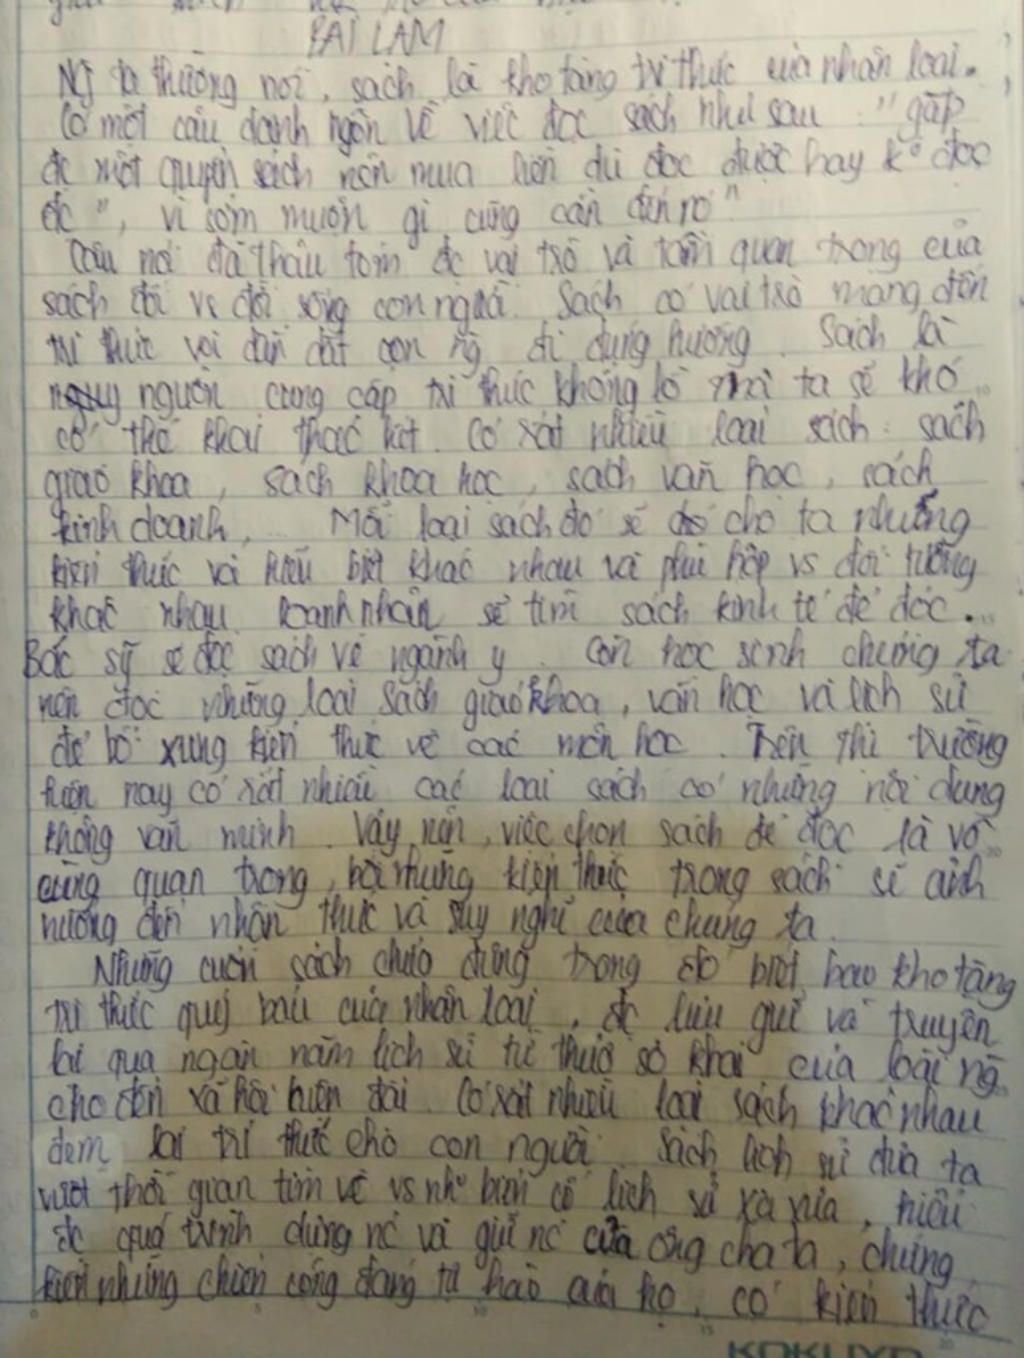 BÀI LÀM
Ng ta thường nói, sách là kho tàng tri thức của nhân loại.
Có một câu danh ngôn về việc đọc sách như sau : "gặp
đc một quyển sách nên mua liền dù đọc được hay k° đọc
đc", vì sớm muộn gì cũng cần đến nó"
Câu nói đã thâu tóm đc vai trò và tầm quan trọng của
sách đối vs đời sống con người. Sách có vai trò mang đến
tri thức và dẫn dắt con ng đi đúng hướng. Sách là
nguồn cung cấp tri thức khổng lồ mà ta sẽ khó
có thể khai thác hết. Có rất nhiều loại sách : sách
giáo khoa, sách khoa học, sách văn học, sách
kinh doanh, ... Mỗi loại sách đó sẽ cho ta những
kiến thức và hiểu biết khác nhau và phù hợp vs đối tượng
khác nhau. Doanh nhân sẽ tìm sách kinh tế để đọc...
Bác sỹ sẽ đọc sách về ngành y. Còn học sinh chúng ta
nên đọc những loại sách giáo khoa, văn học và lịch sử
để bổ xung kiến thức về các môn học. Trên thì trường
hiện nay có rất nhiều các loại sách có những nội dung
không văn minh. Vậy nên, việc chọn sách để đọc là vô
cùng quan trọng, bởi những kiến thức trong sách sẽ ảnh
hưởng đến nhận thức và suy nghĩ của chúng ta.
Những cuốn sách chứa đựng trong đó biết bao kho tàng
tri thức quý báu của nhân loại, đc lưu giữ và truyền
lại qua ngàn năm lịch sử từ thuở sơ khai của loài ng
cho đến xã hội hiện đại. Có rất nhiều loại sách khác nhau
đem lại tri thức cho con người. Sách lịch sử đưa ta
vượt thời gian tìm về vs nh° biến cố lịch sử xa xưa, hiểu
đc quá trình dựng nc và giữ nc của ông cha ta, chứng
kiến những chiến công đáng tự hào của họ, có kiến thức
KOKUYO